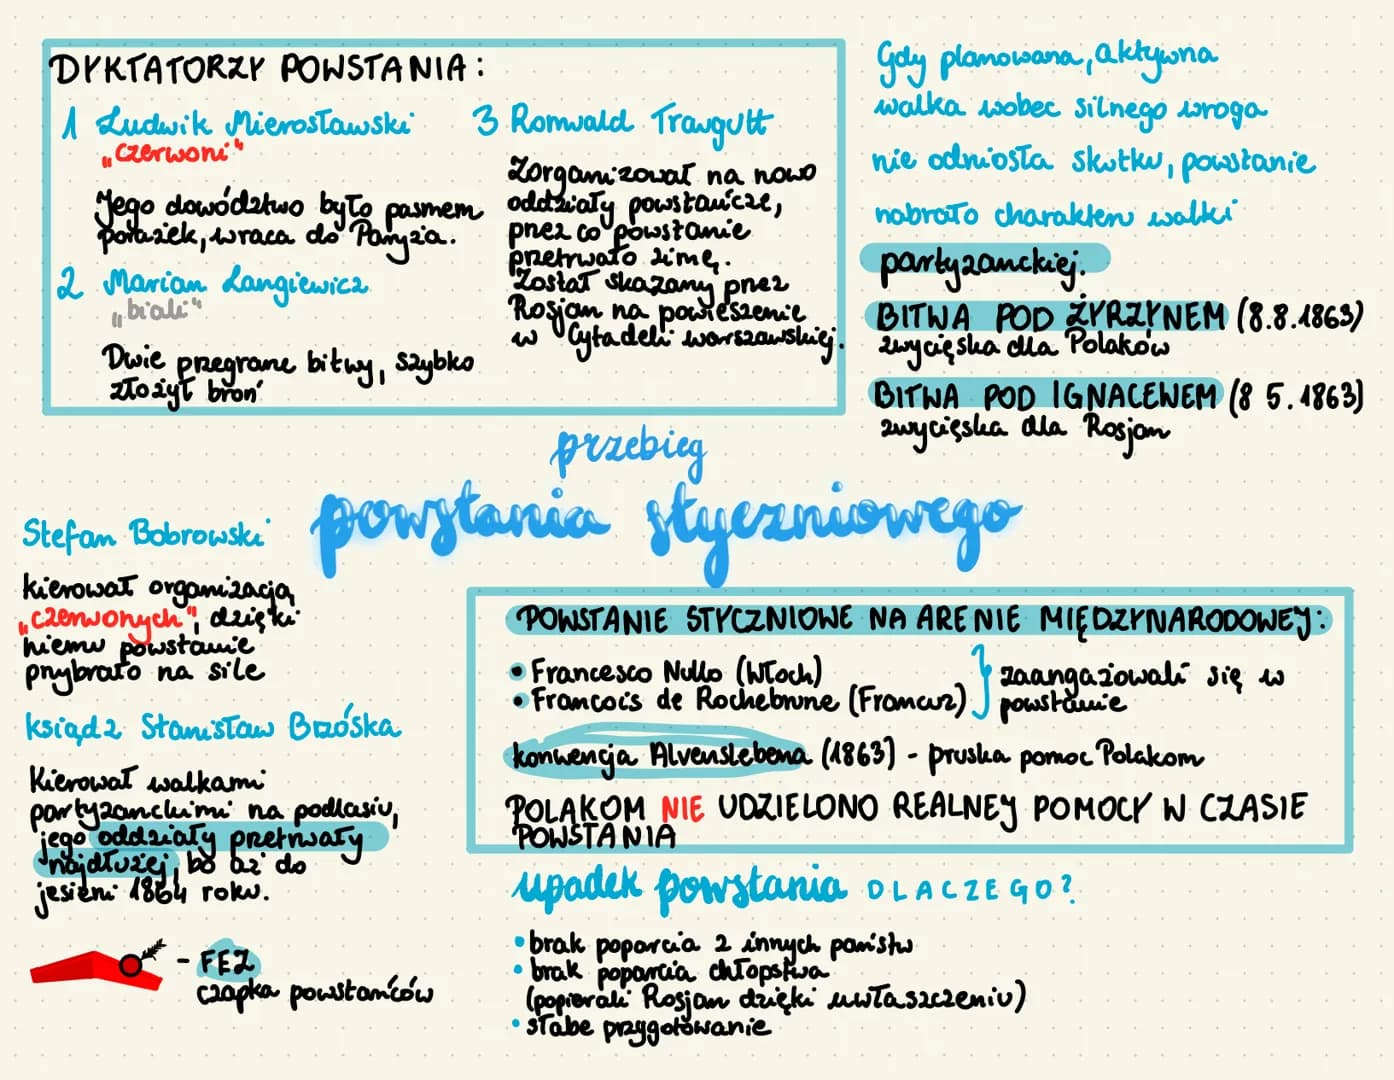 DYKTATORZY POWSTANIA:
1 Ludwik Mierosławski
„czerwoni"
Jego dowództwo było pasmem
porażek, wraca do Paryża.
2 Marian Langiewicz
„biali"
Dwie przegrane bitwy, szybko
złożył broń
3 Romuald Traugutt
Zorganizował na nowo
oddziały powstańcze,
przez co powstanie
przetrwało zimę.
Został skazany przez
Rosjan na powieszenie
w Cytadeli warszawskiej.
Gdy planowana, aktywna
walka wobec silnego wroga
nie odniosła skutku, powstanie
nabrało charakteru walki
partyzanckiej.
BITWA POD ŻYRZYNEM (8.8.1863)
zwycięska dla Polaków
BITWA POD IGNACEWEM (8 5.1863)
zwycięska dla Rosjan
przebieg
powstania styczniowego
Stefan Bobrowski
kierował organizacją
„czerwonych", dzięki
niemu powstanie
przybrało na sile
ksiądz Stanisław Brzóska
Kierował walkami
partyzanckimi na podlasiu,
jego oddziały przetrwały
najdłużej, bo aż do
jesieni 1864 roku.
- FEZ
czapka powstańców
POWSTANIE STYCZNIOWE NA ARENIE MIĘDZYNARODOWEJ:
• Francesco Nullo (Włoch)
• Francois de Rochebrune (Francuz)
zaangażowali się w
powstanie
konwencja Alvenslebena (1863) - pruska pomoc Polakom
POLAKOM NIE UDZIELONO REALNEJ POMOCY W CZASIE
POWSTANIA
upadek powstania DLACZEGO?
• brak poparcia z innych państw
• brak poparcia chłopstwa
(popierali Rosjan dzięki uwłaszczeniu)
• słabe przygotowanie